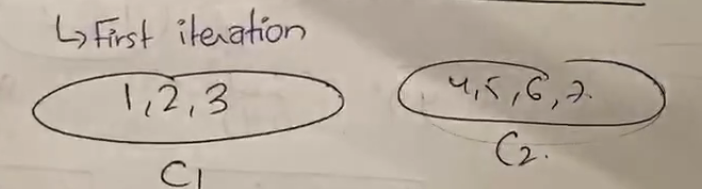 ↳ First iteration
1, 2, 3
4, 5, 6, 7.
C1
C2.